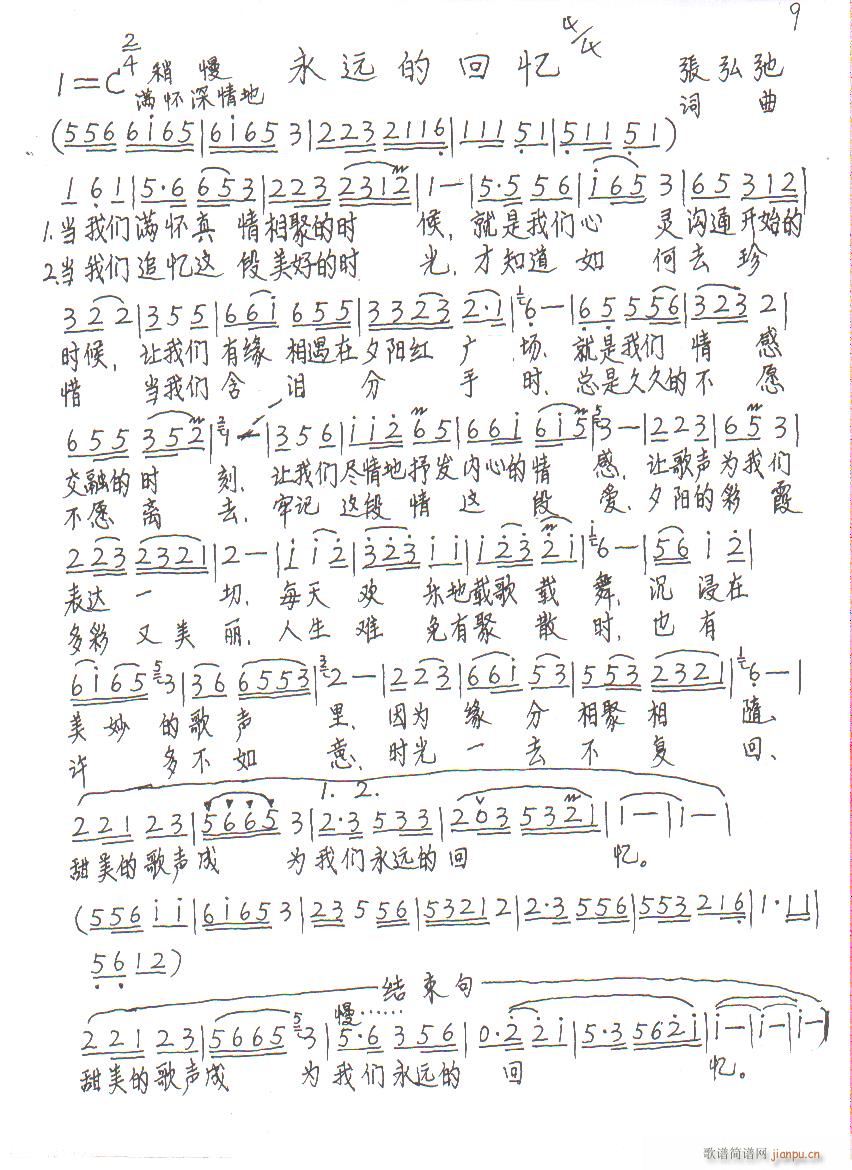 9
1=C 2/4 稍慢 永远的回忆 4/4 張弘弛
满怀深情地 词 曲
(556 6i65|6i65 3|223 2116|111 51|511 51)
1 61|5·6 653|223 2312|1—|5·5 56|i65 3|65 312|
1.当我们满怀真 情相聚的时 候,就是我们心 灵沟通开始的
2.当我们追忆这 段美好的时 光,才知道如 何去珍
3 22|355|66i 655|3323 2·1|6—|65 556|323 2|
时候,让我们有缘相遇在夕阳红广 场,就是我们 情 感
惜 当我们含 泪 分 手 时,总是久久的不 愿
655 352|1—|356|ii2 65|66i 6i5|3—|223|65 3|
交融的时 刻,让我们尽情地抒发内心的情 感,让歌声为我们
不愿 离 去,牢记 这段 情 这 段 爱,夕阳的彩 霞
223 2321|2—|i i2|323 ii|i23 2i|6—|56 i2|
表达 一 切,每天 欢 乐地载歌 载 舞,沉 浸在
多彩 又美 丽,人生 难 免有聚 散 时,也有
6i65 3|36 6553|2—|223|66i 53|553 2321|6—|
美 妙 的歌 声 里,因为 缘 分 相聚 相 随、
许 多不如 意,时光 一 去 不 复 回、
1. 2.
221 23|5665 3|2·3 533|203 5321|1—|1—|
甜美的歌声成 为我们永远的回 忆。
(556 ii|6i65 3|23 5 56|5321 2|2·3 556|553 216|1·11|
56 12)
结束句
慢……
221 23|5665 3|5·6 356|0·2 2i|5·3 562i|i—|i—|i—|
甜美的歌声成 为我们永远的 回 忆。
歌谱简谱网 jianpu.cn